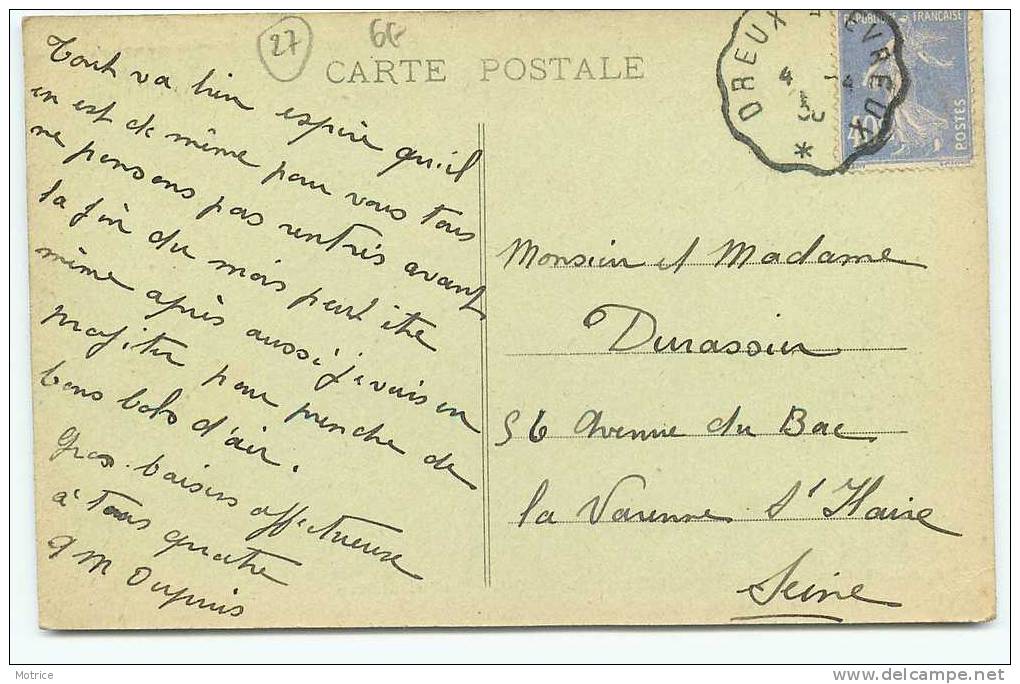 27
6G
CARTE POSTALE
DREUX EVREUX
4 4
30
REPUBLIQUE FRANÇAISE
40
POSTES
Tout va bien espère qu'il
en est de même pour vous tous
ne pensons pas rentrés avant
la fin du mois peut être
même après aussi j'vais en
profiter pour prendre de
bons bols d'air.
Gros baisers affectueuse
à tous quatre
M Dupuis
Monsieur et Madame
Durassier
56 Avenue du Bac
la Varenne St Haire
Seine
Motrice
www.delcampe.net